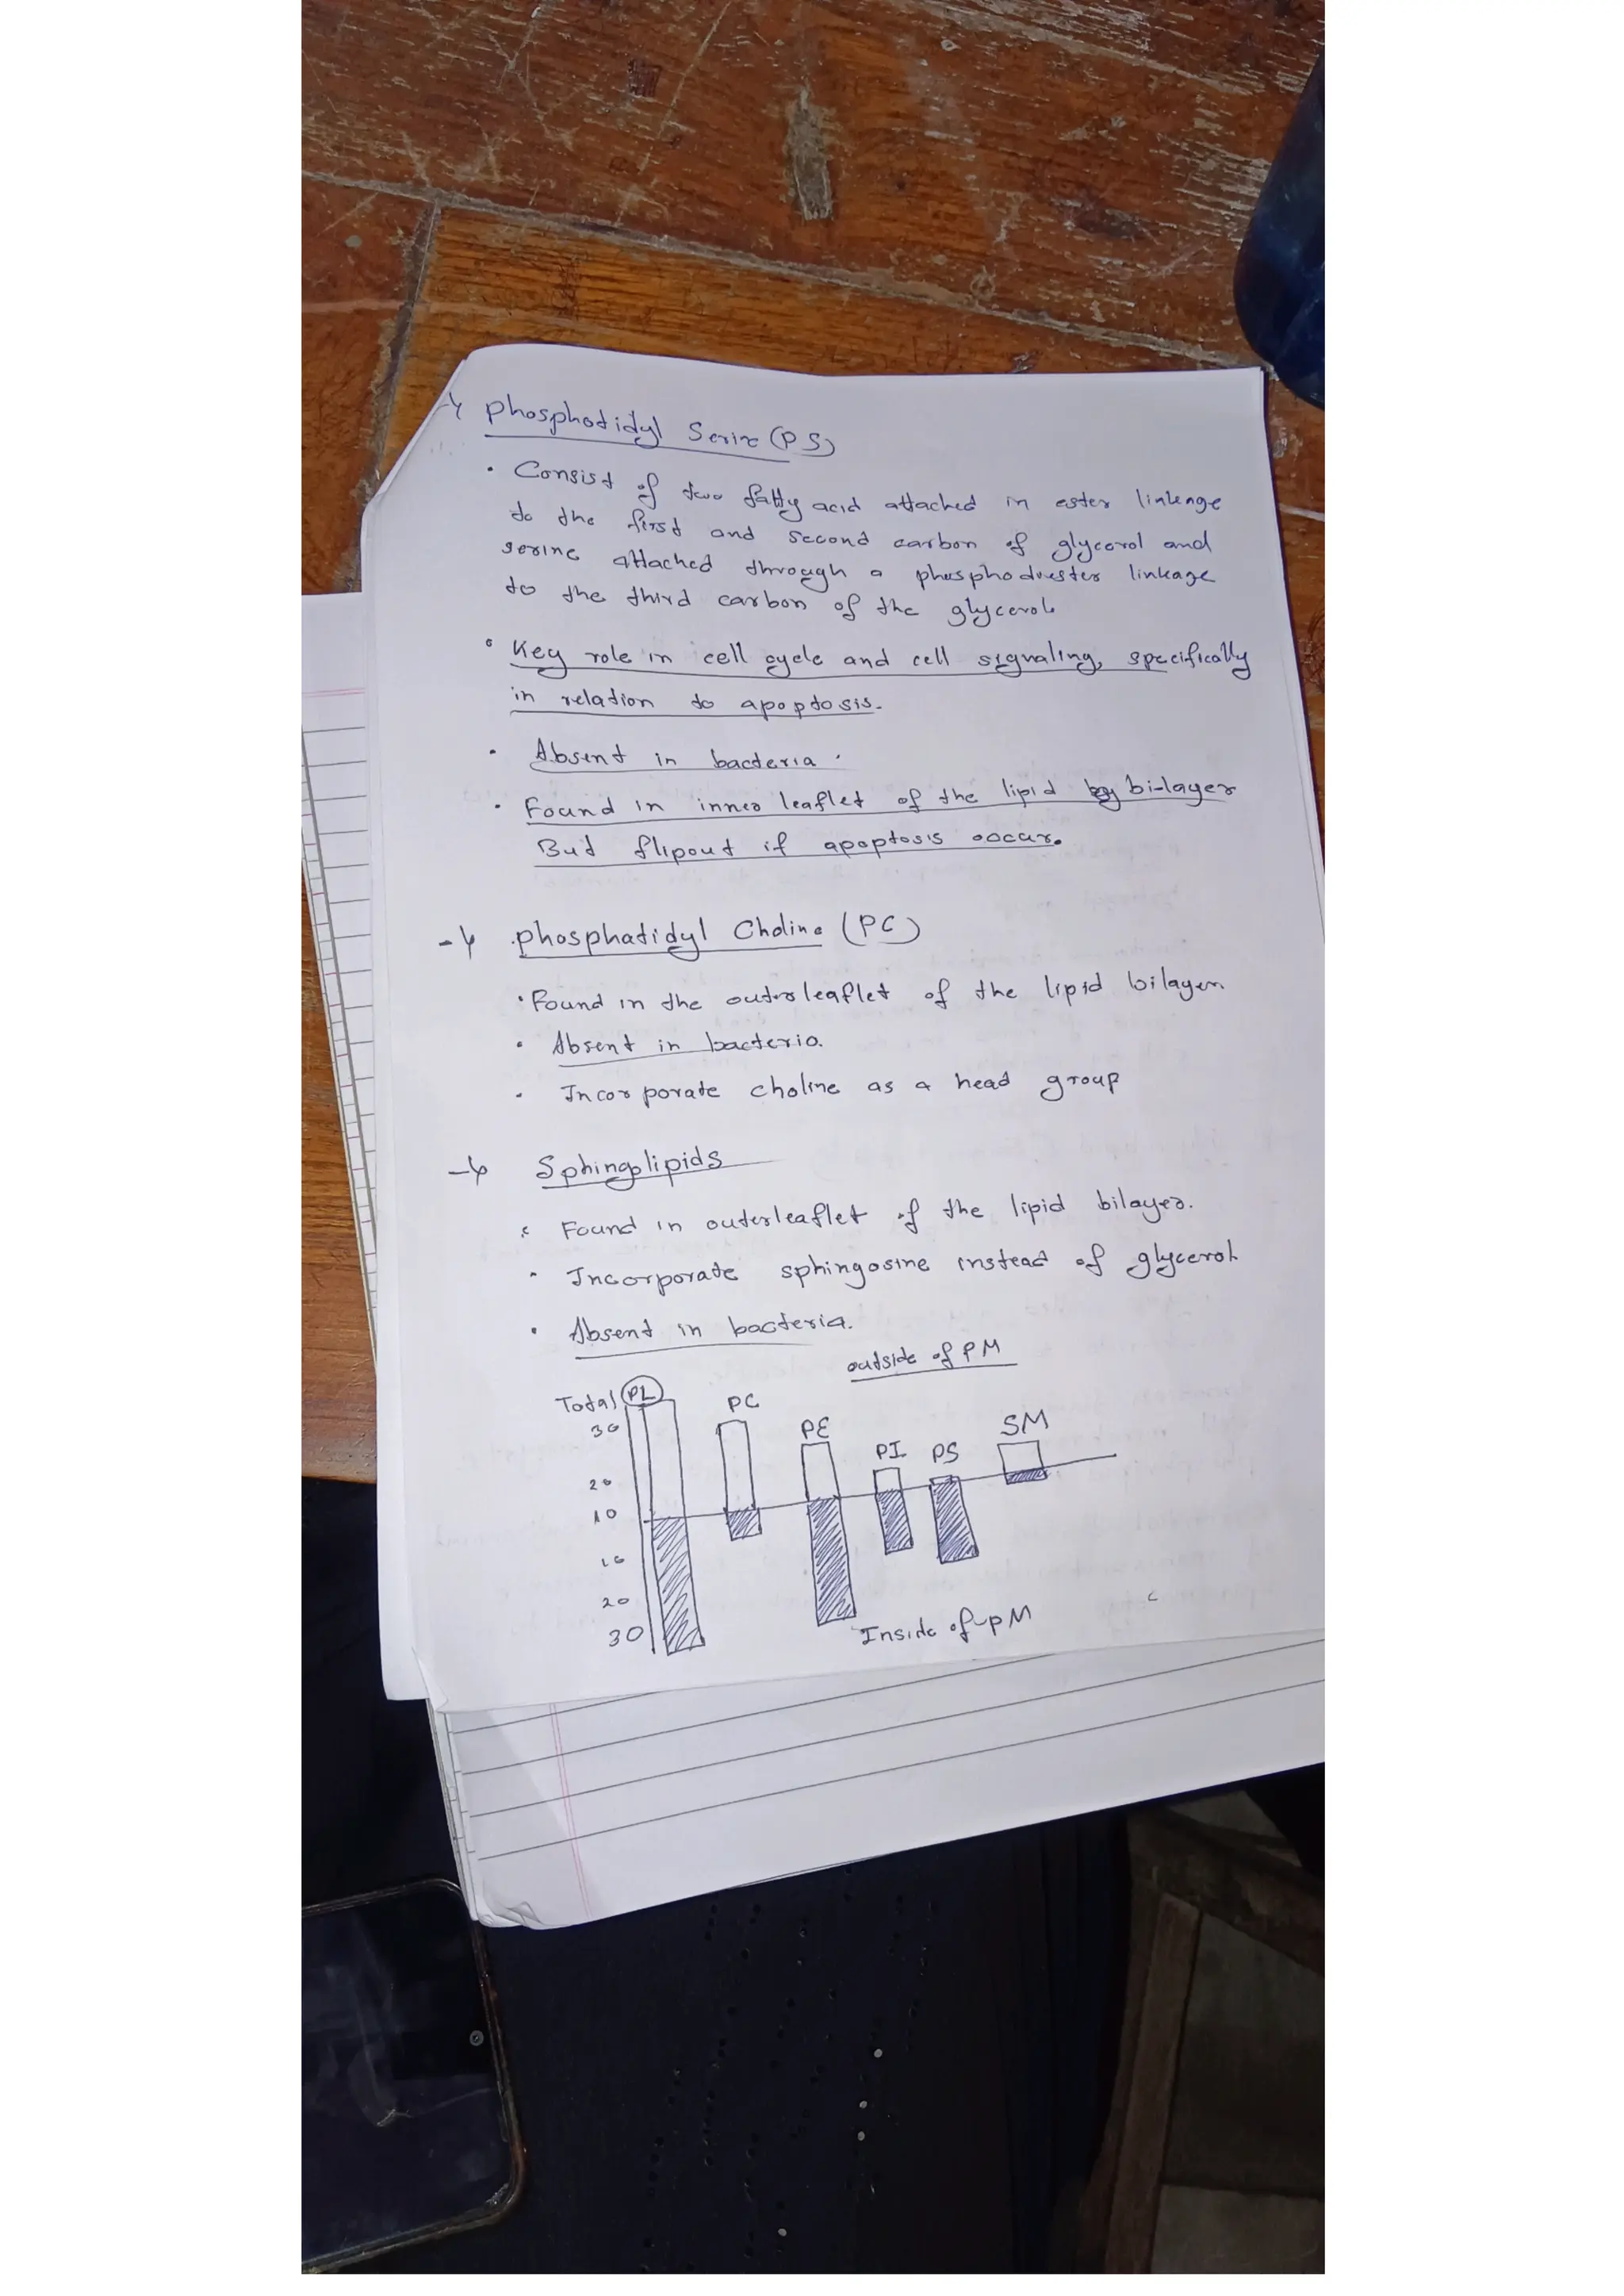 phosphotidyl Serine (PS)
• Consist of two fatty acid attached in ester linkage
to the first and second carbon of glycerol and
serine attached through a phosphodiester linkage
to the third carbon of the glycerol.
• Key role in cell cycle and cell signaling, specifically
in relation to apoptosis.
• Absent in bacteria.
• Found in inner leaflet of the lipid bi-layer
But flipout if apoptosis occur.
phosphatidyl Choline (PC)
• Found in the outer leaflet of the lipid bilayer.
• Absent in bacteria.
• Incorporate choline as a head group
Sphingolipids
• Found in outerleaflet of the lipid bilayer.
• Incorporate sphingosine instead of glycerol.
• Absent in bacteria.
outside of PM
Total PL PC PE PI PS SM
30
20
10
10
20
30
Inside of PM